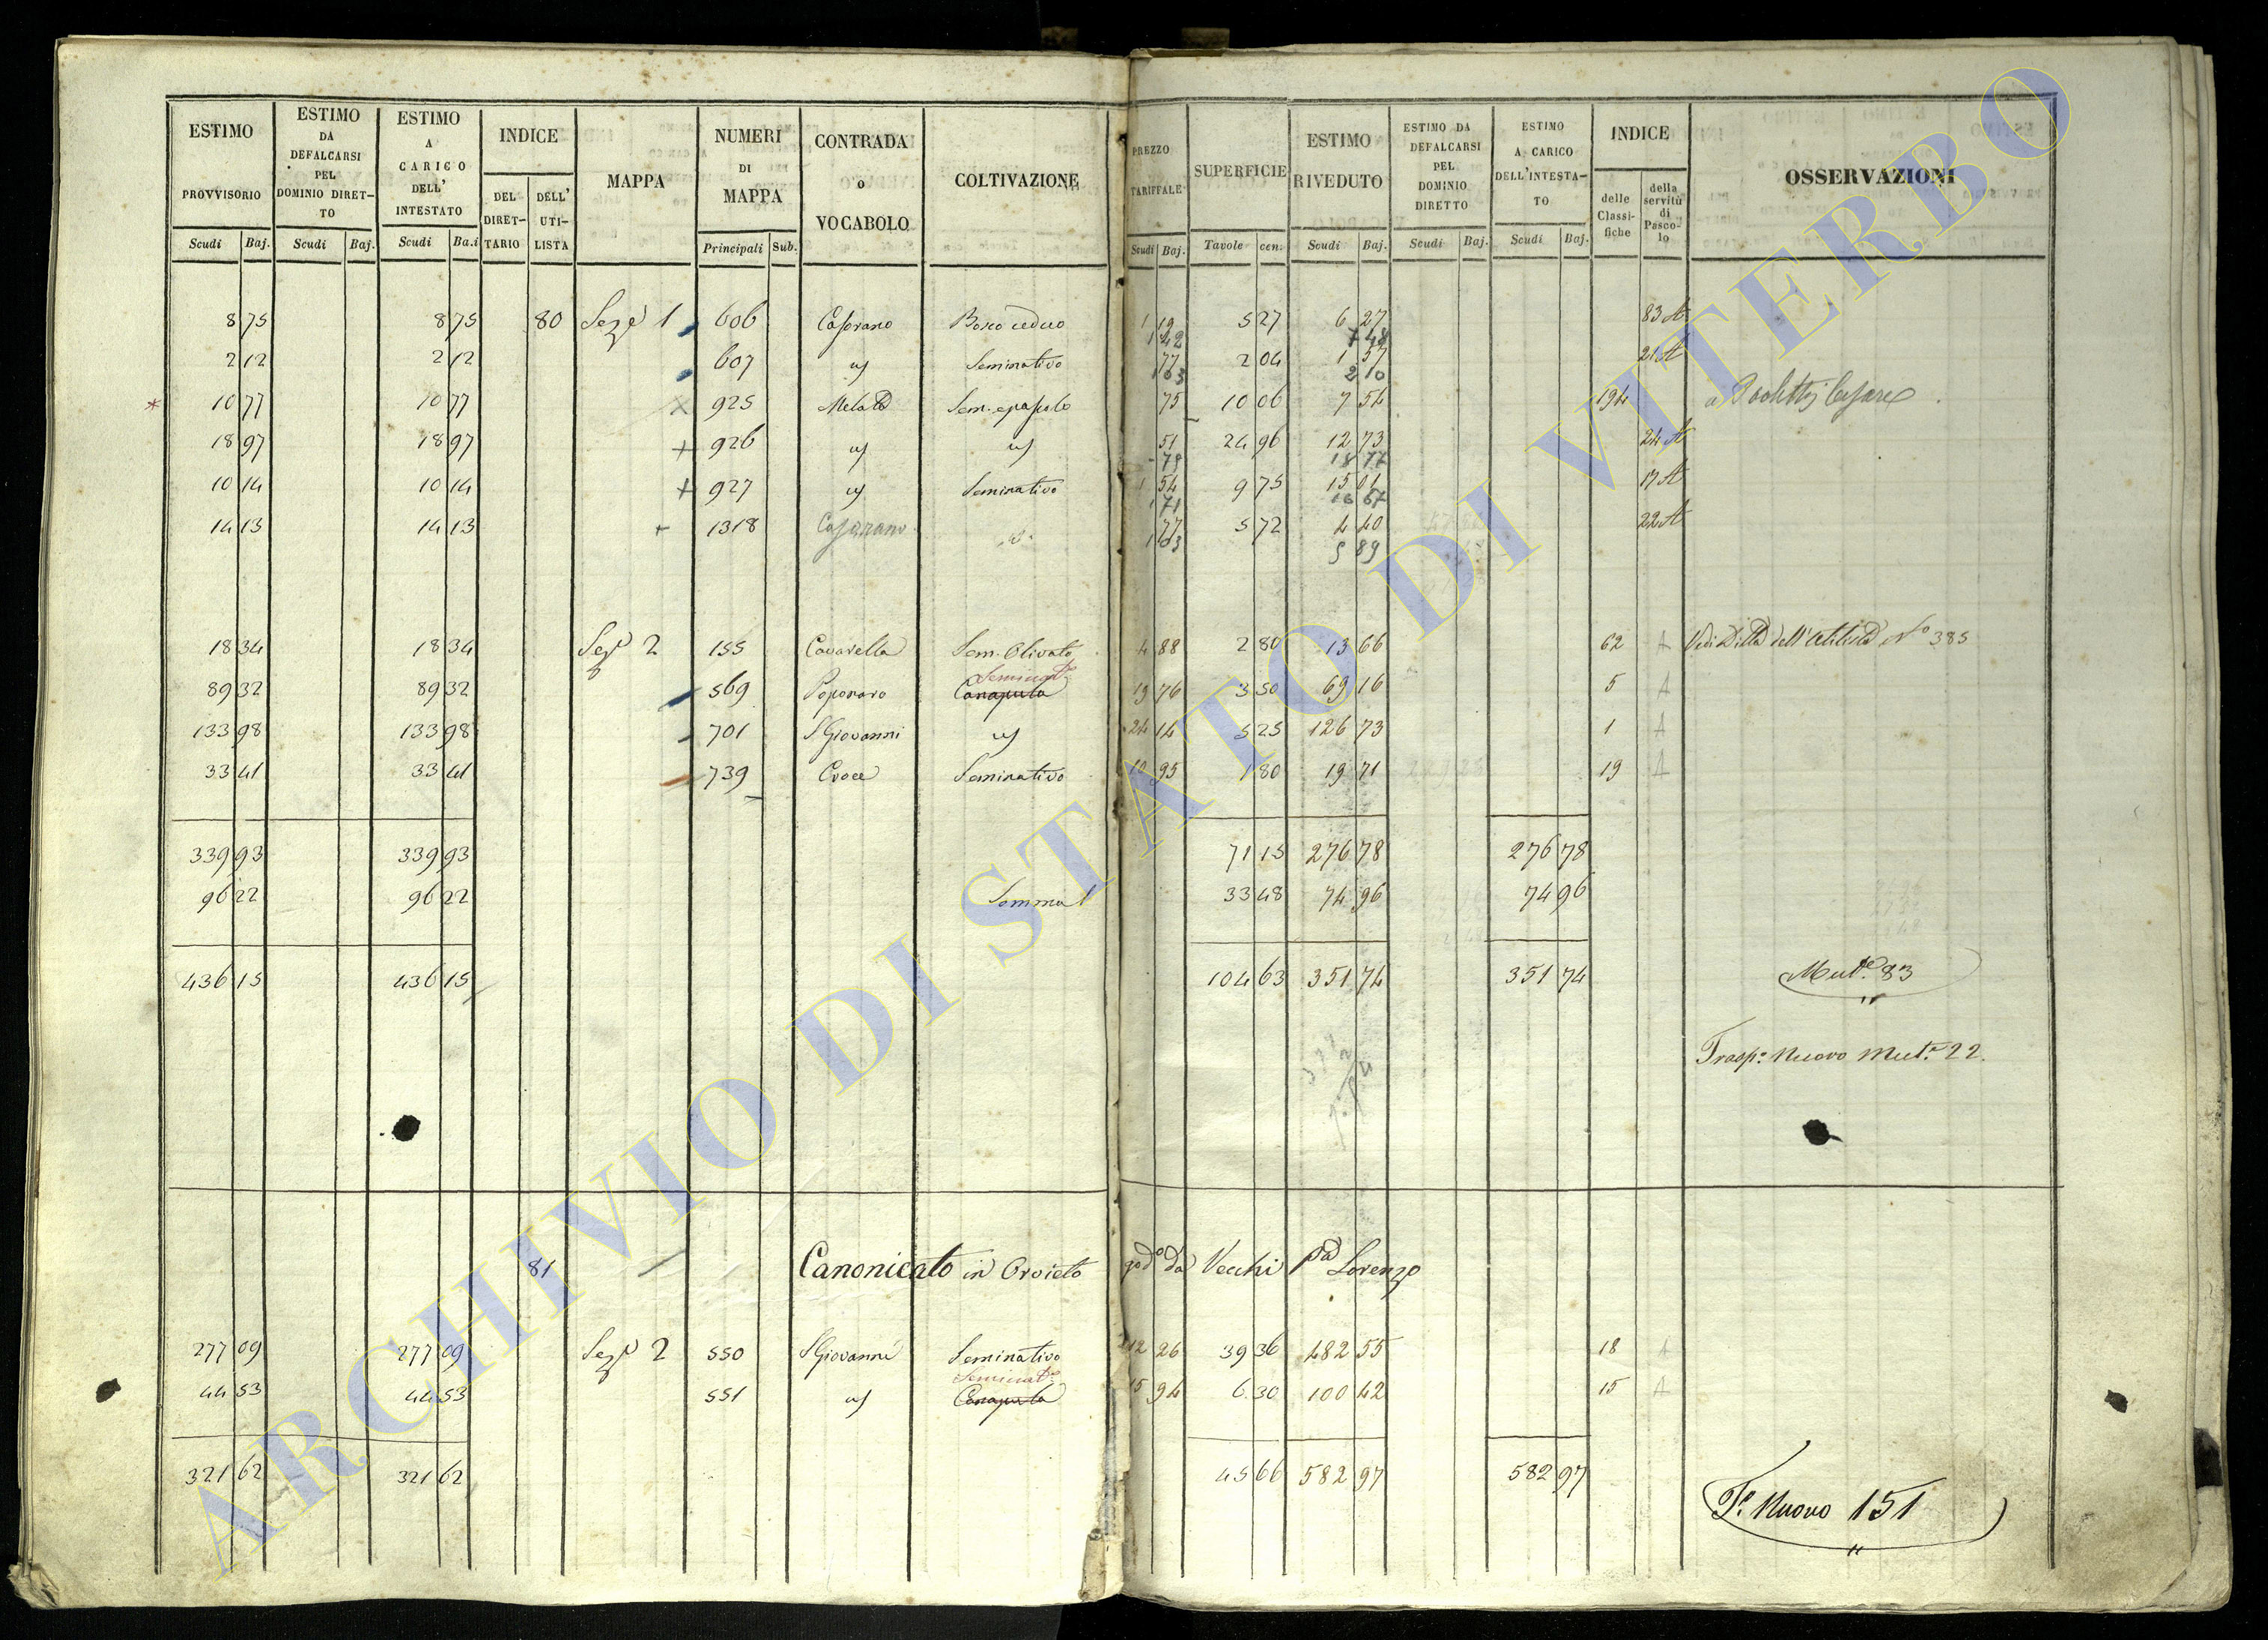 ESTIMO PROVVISORIO Scudi Baj.
ESTIMO DA DEFALCARSI PEL DOMINIO DIRETTO Scudi Baj.
ESTIMO A CARICO DELL' INTESTATO Scudi Ba.i
INDICE DEL DIRET-TARIO DELL' UTI-LISTA
MAPPA
NUMERI DI MAPPA Principali Sub.
CONTRADA o VOCABOLO
COLTIVAZIONE
PREZZO TARIFFALE Scudi Baj.
SUPERFICIE Tavole cen.
ESTIMO RIVEDUTO Scudi Baj.
ESTIMO DA DEFALCARSI PEL DOMINIO DIRETTO Scudi Baj.
ESTIMO A CARICO DELL'INTESTA-TO Scudi Baj.
INDICE delle Classi-fiche della servitù di Pasco-lo
OSSERVAZIONI
8 75 8 75 80 Seze 1 606 Caforano Bosco ceduo 1 19 5 27 6 27 83 A
1 42 7 48
2 12 2 12 607 " Seminativo 77 2 04 1 57 21 A
1 03 2 10
10 77 10 77 925 Sem. e pascolo 75 10 06 7 54 194 a Paoletti Cesare
18 97 18 97 926 " " 51 24 96 12 73 24 A
79 18 77
10 14 10 14 927 " Seminativo 1 54 9 75 15 01 17 A
1 71 16 67
14 13 14 13 1318 Caforano " 77 5 72 4 40 22 A
1 03 5 89
18 34 18 34 Seze 2 155 Cavarella Sem. Olivato 4 88 2 80 13 66 62 A Vedi Ditta dell'Utilista No 385
Seminato
89 32 89 32 569 Poponaro Canapula 19 76 3 50 69 16 5 A
133 98 133 98 701 S Giovanni " 24 14 5 25 126 73 1 A
33 41 33 41 739 Croce Seminativo 10 95 1 80 19 71 19 A
339 93 339 93 71 15 276 78 276 78
96 22 96 22 Somma 33 48 74 96 74 96
436 15 436 15 104 63 351 74 351 74 Mute. 83
Trasp: Nuovo Mut.e 22.
81 Canonicato in Orvieto god.o da Vecchi pd Lorenzo
277 09 277 09 Seze 2 550 S Giovanni Seminativo 12 26 39 36 482 55 18 A
Seminato
44 53 44 53 551 " Canapula 15 94 6 30 100 42 15 A
321 62 321 62 45 66 582 97 582 97
T.o Nuovo 151
ARCHIVIO DI STATO DI VITERBO